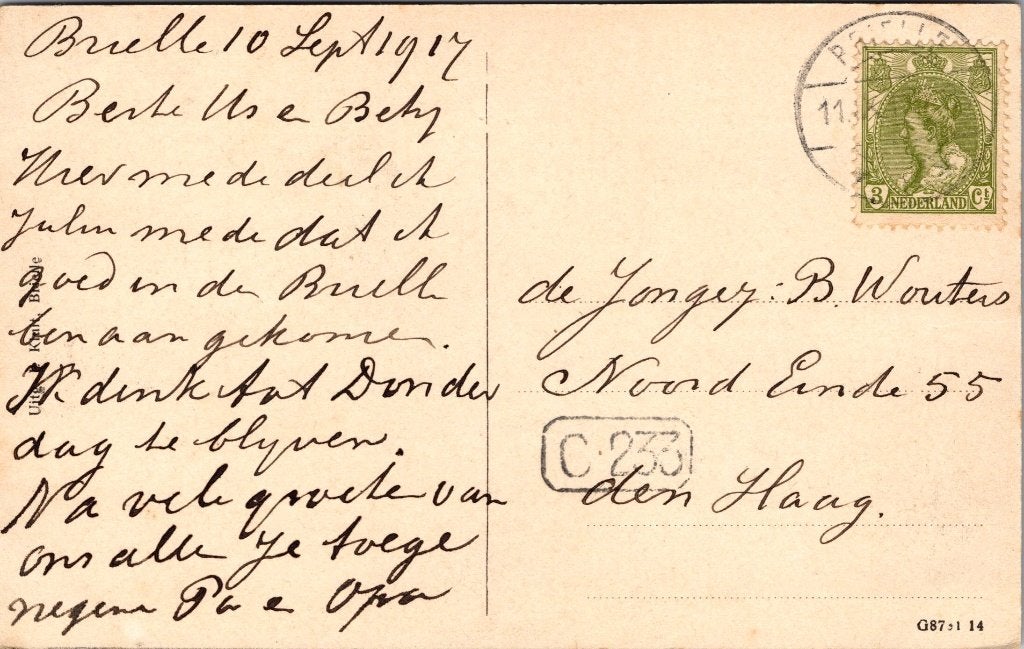 Brielle 10 Sept 1917
Beste Us en Betsy
Hier mede deel ik
Julie mede dat ik
goed in den Brielle
ben aan gekomen.
Ik denk tot Donder
dag te blyven.
Na vele groeten van
ons alle Je toege
negene Pa en Opa
Uitg. Brielle
BRIELLE
11.
3 NEDERLAND Ct
de Jongej: B. Wouters
Noord Einde 55
C·233
den Haag.
G87 14